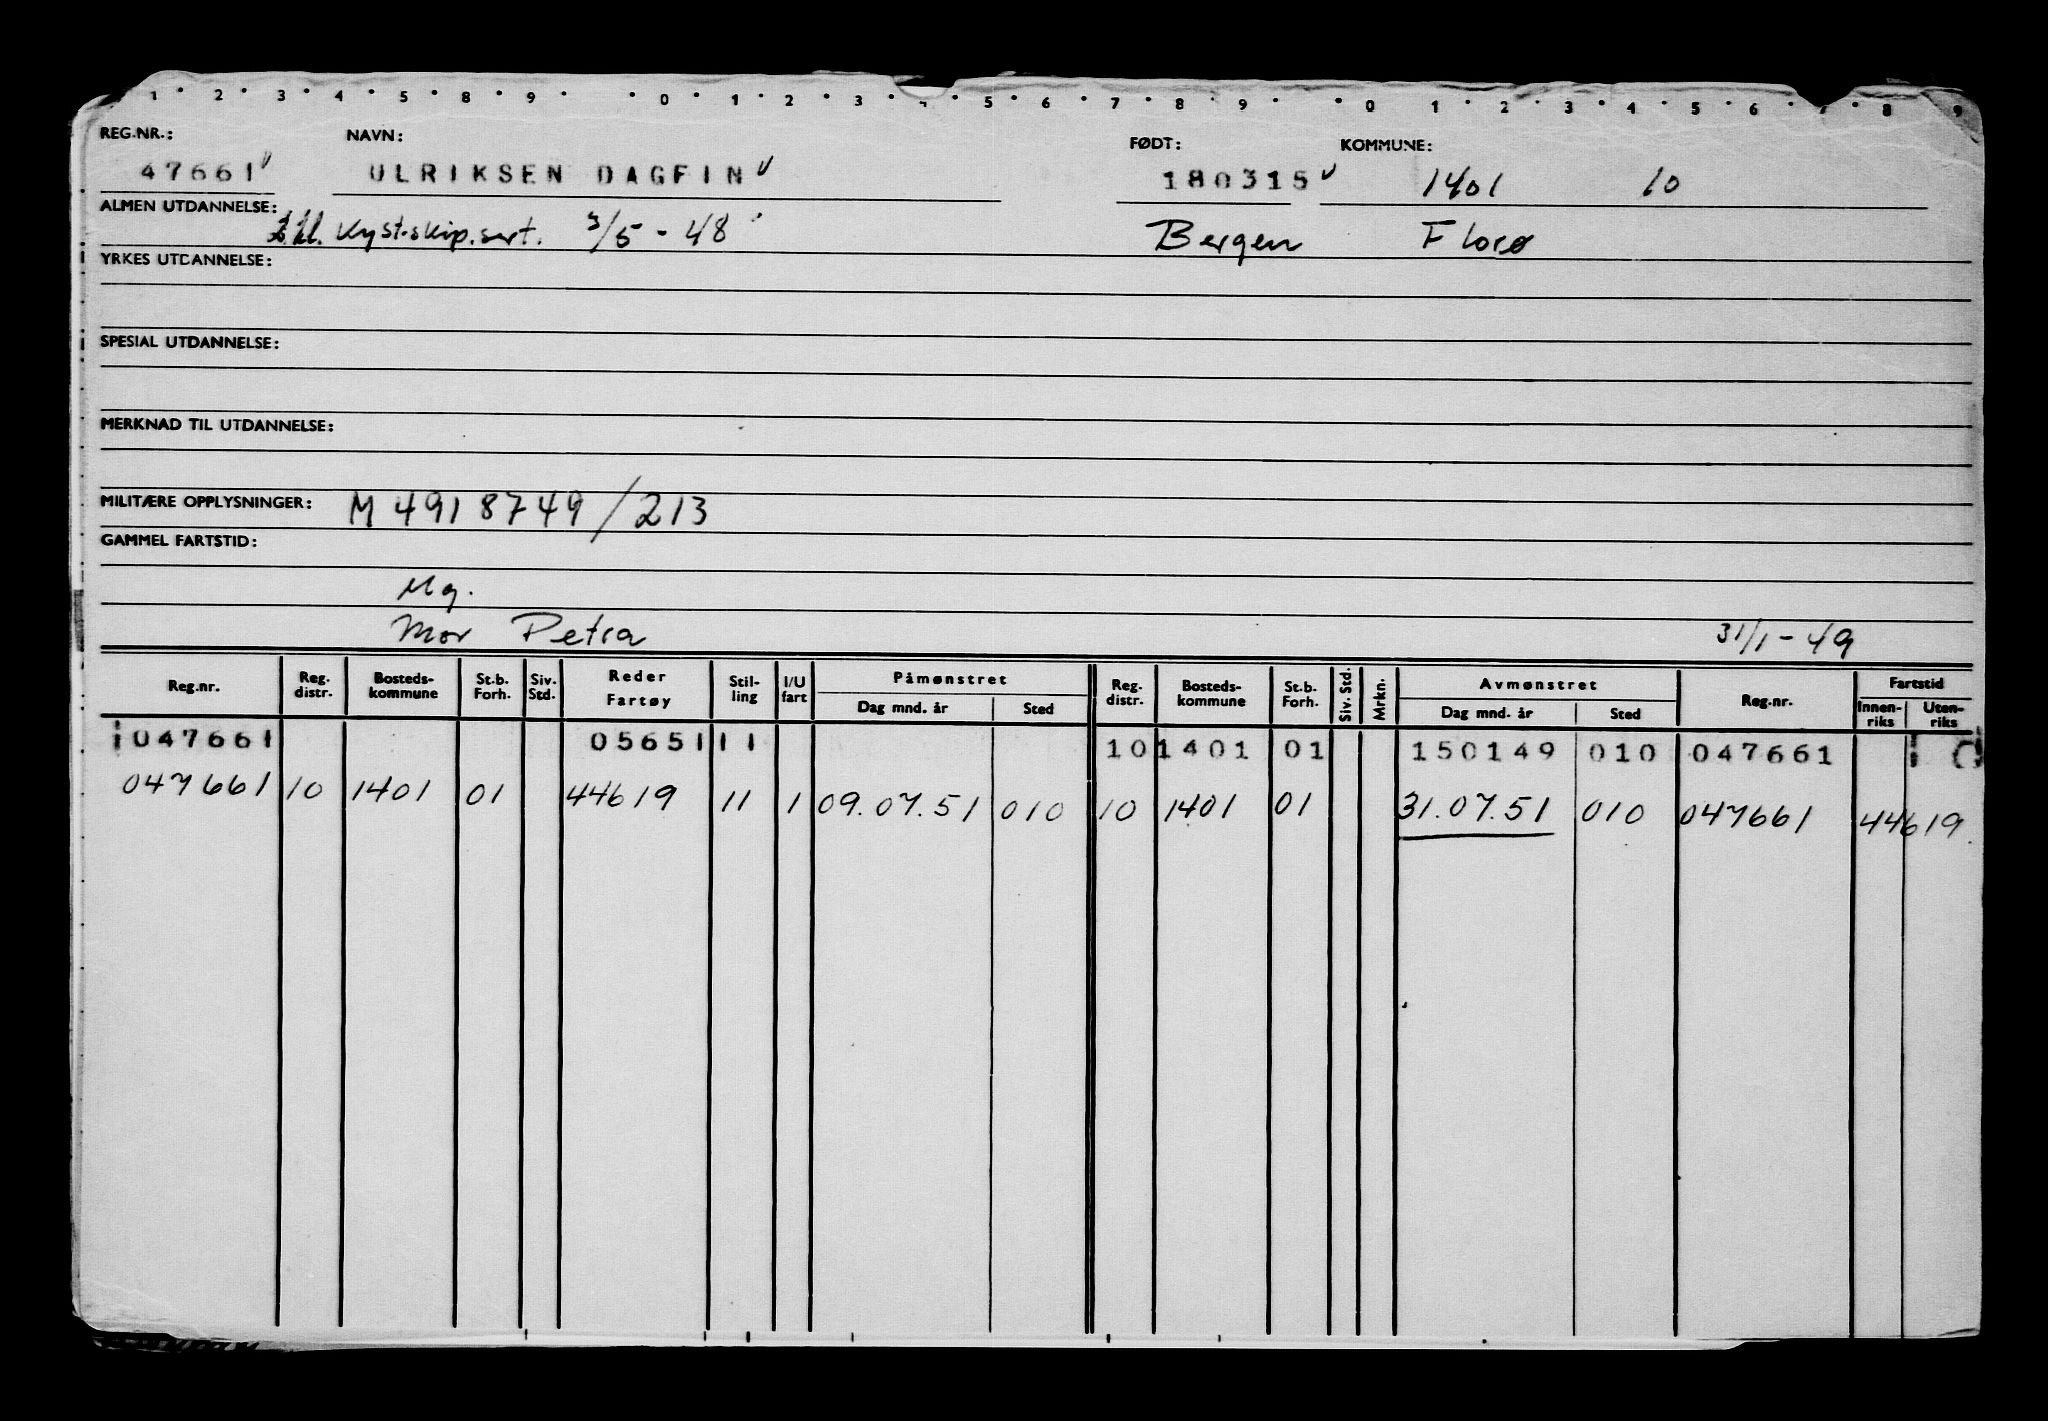 1 2 3 4 5 8 9 0 1 2 3 4 5 6 7 8 9 0 1 2 3 4 5 6 7 8 9
REG.NR.: NAVN: FØDT: KOMMUNE:
47661 ULRIKSEN DAGFIN 180315 1401 10
ALMEN UTDANNELSE: kyst.skip.sert. 3/5-48 Bergen Florø
YRKES UTDANNELSE:
SPESIAL UTDANNELSE:
MERKNAD TIL UTDANNELSE:
MILITÆRE OPPLYSNINGER: M 4918749/213
GAMMEL FARTSTID:
Mg.
Mor Petra 31/1-49
Reg.nr. Reg. distr. Bosteds- kommune St.b. Forh. Siv. Std. Reder Fartøy Stil- ling I/U fart Påmønstret Dag mnd. år Sted Reg. distr. Bosteds- kommune St.b. Forh. Siv. Std. Mrkn. Avmønstret Dag mnd. år Sted Reg.nr. Fartstid Innen- riks Uten- riks
1047661 05651 11 10 1401 01 150149 010 047661 10
047661 10 1401 01 44619 11 1 09.07.51 010 10 1401 01 31.07.51 010 047661 44619